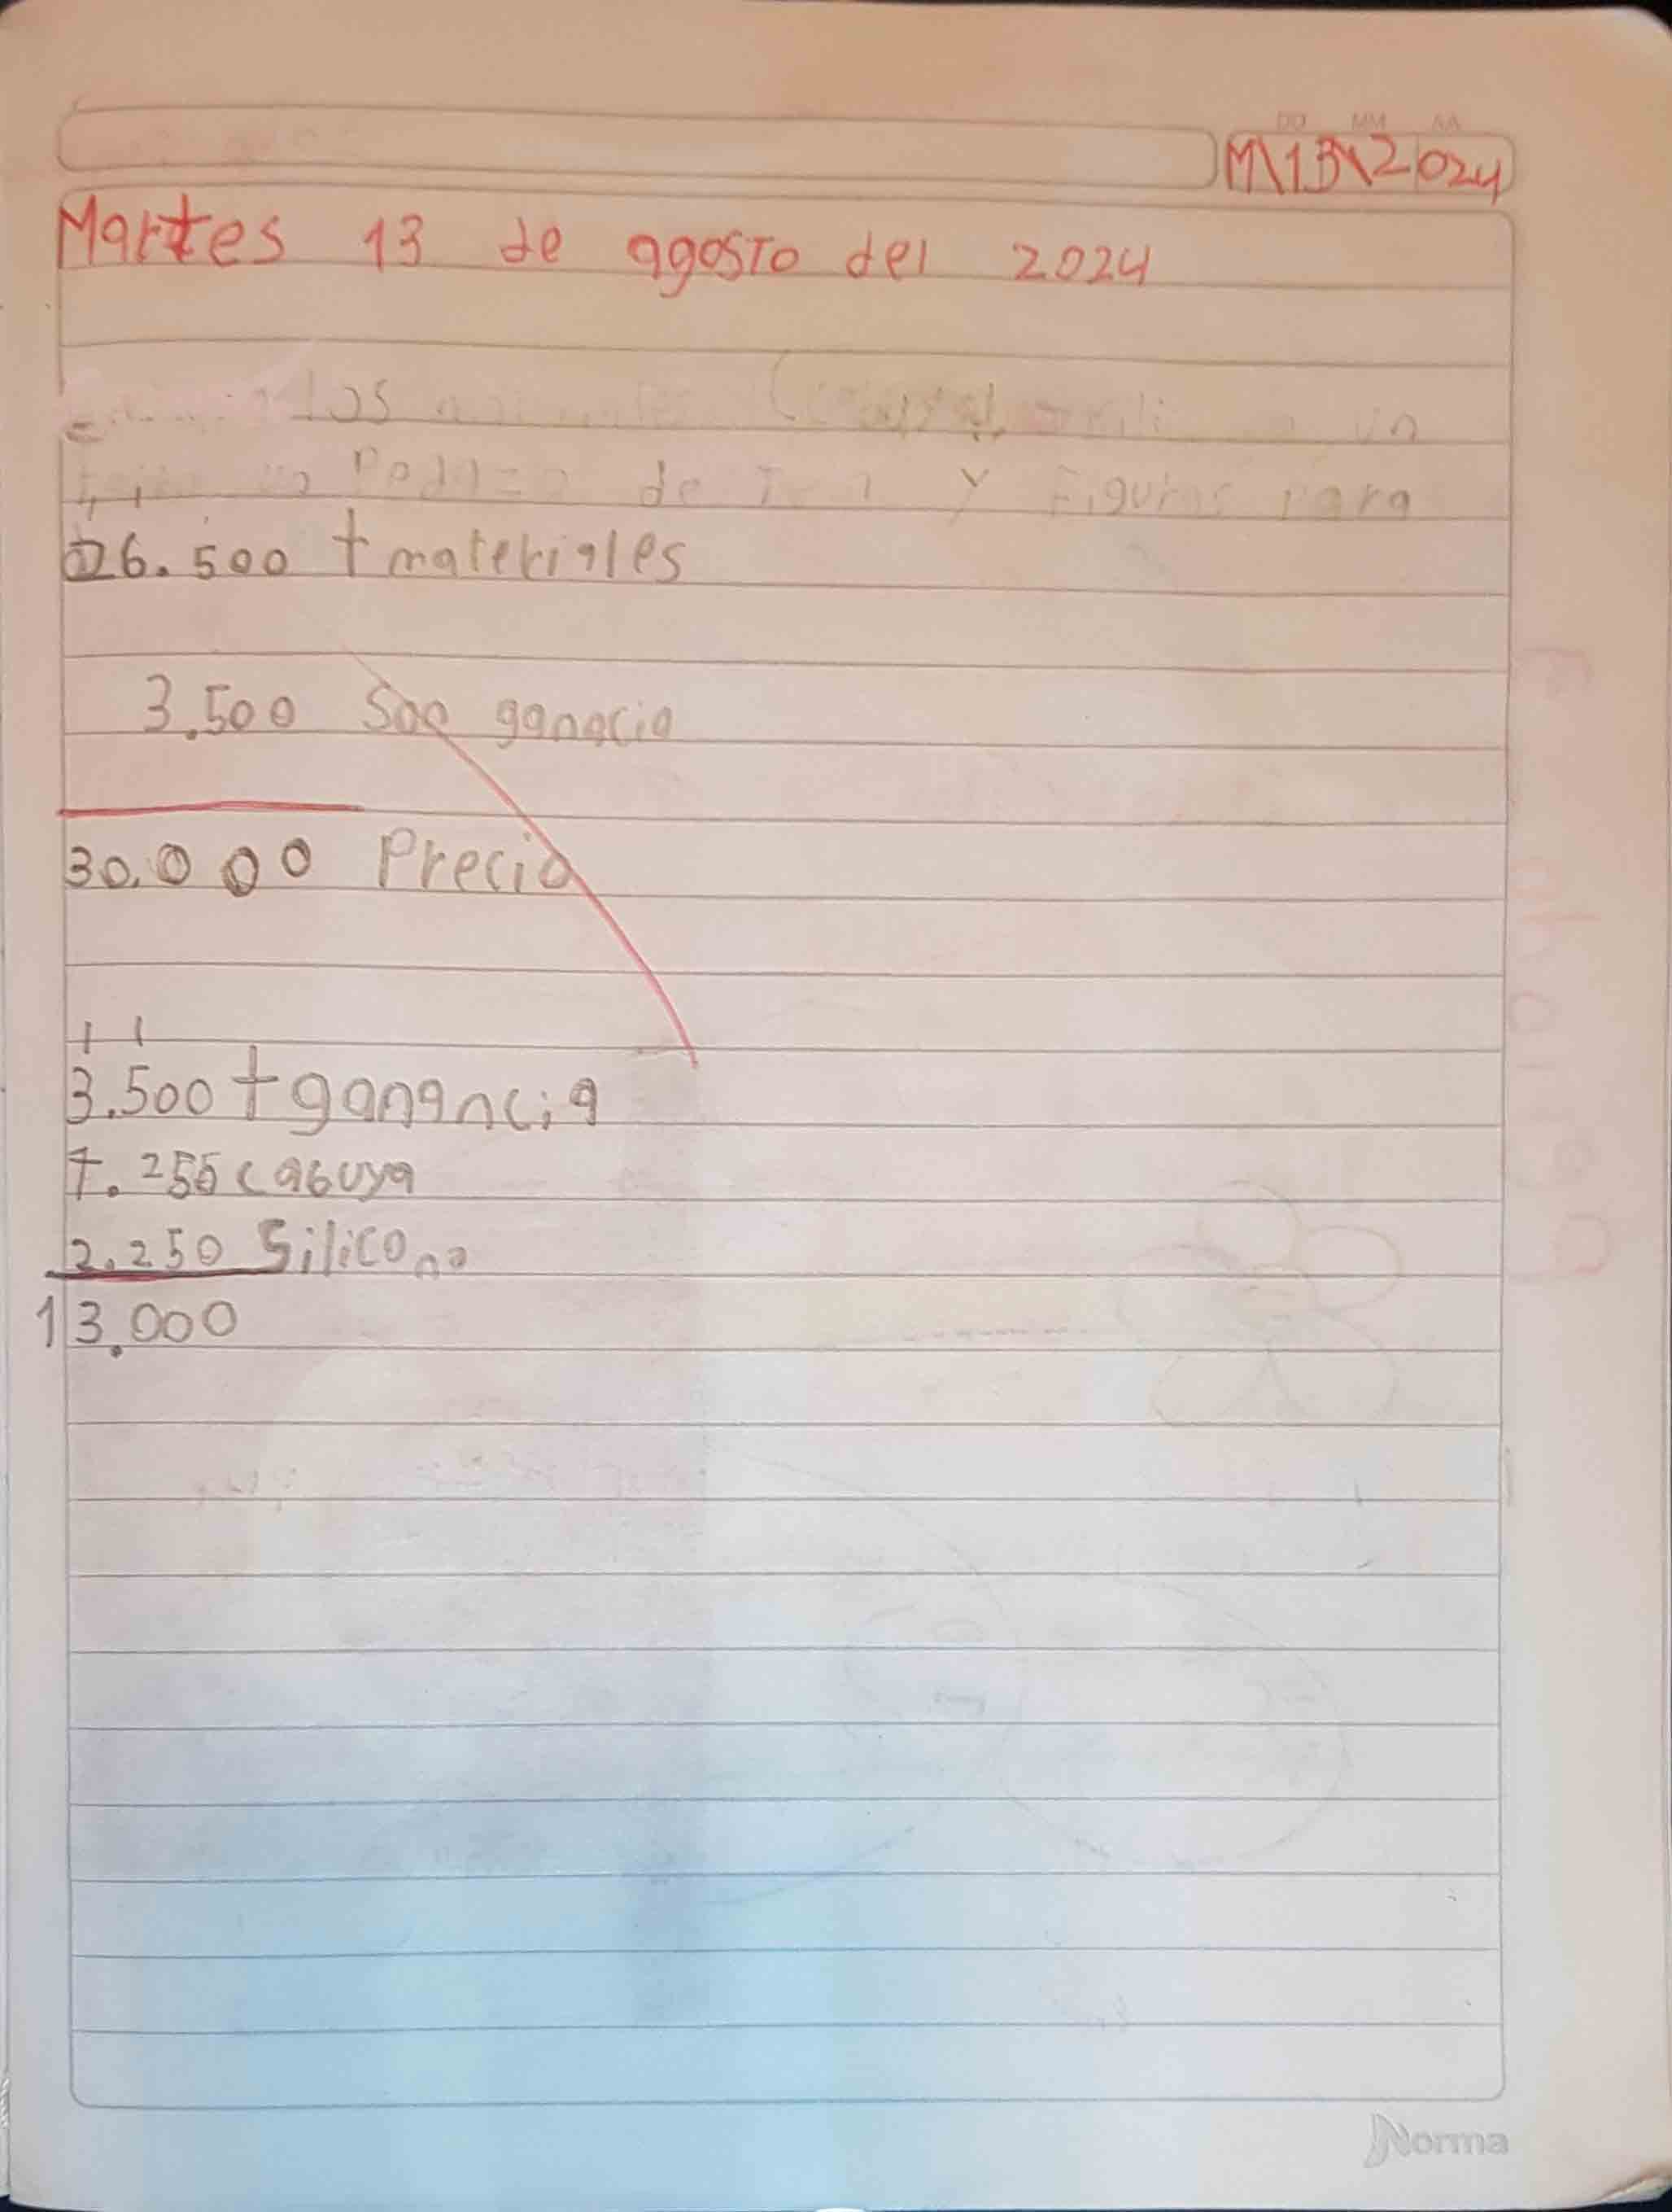 DD MM AA
M\13\2024
Martes 13 de agosto del 2024
los un
Pedazo de y Figuras para
26.500 + materiales
3.500 500 ganacia
30.000 Precio
1 1
3.500 + ganancia
7.250 cabuya
2.250 Silicona
13.000
Norma